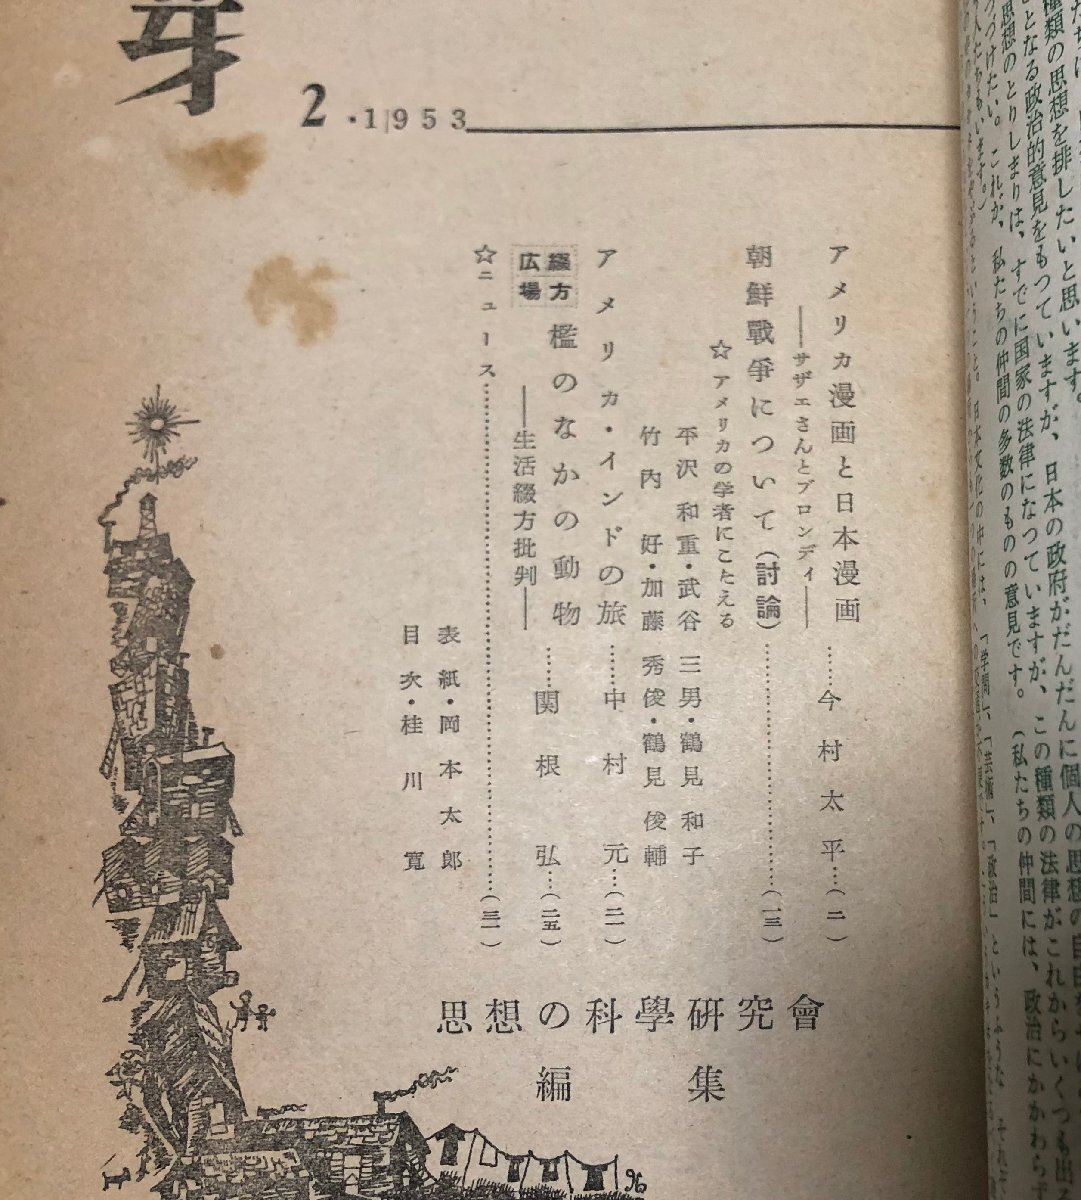 芽
2・1953
アメリカ漫画と日本漫画……今村太平…(二)
――サザエさんとブロンディ――
朝鮮戰爭について(討論)……………………(一三)
☆アメリカの学者にこたえる
平沢和重・武谷三男・鶴見和子
竹内好・加藤秀俊・鶴見俊輔
アメリカ・インドの旅……中村元…(二一)
綴方広場 檻のなかの動物……関根弘…(二五)
――生活綴方批判――
☆ニュース……………………………………(三一)
表紙・岡本太郎
目次・桂川寛
思想の科學研究會
編集
種類の思想を排したいと思います。
となる政治的意見をもつていますが、日本の政府がだんだんに個人の思想の自由を
思想のとりしまりは、すでに国家の法律になつていますが、この種類の法律がこれからいくつも出る
つづけたい。これが、私たちの仲間の多数のものの意見です。(私たちの仲間には、政治にかかわらず
「学問」、「芸術」、「政治」というふうな